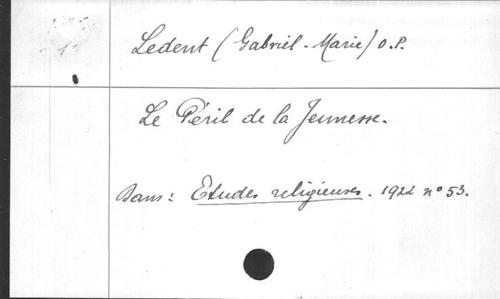 Ledent (Gabriel-Marie) O.P.
Le Péril de la Jeunesse.
Dans: Etudes religieuses. 1922 n° 53.